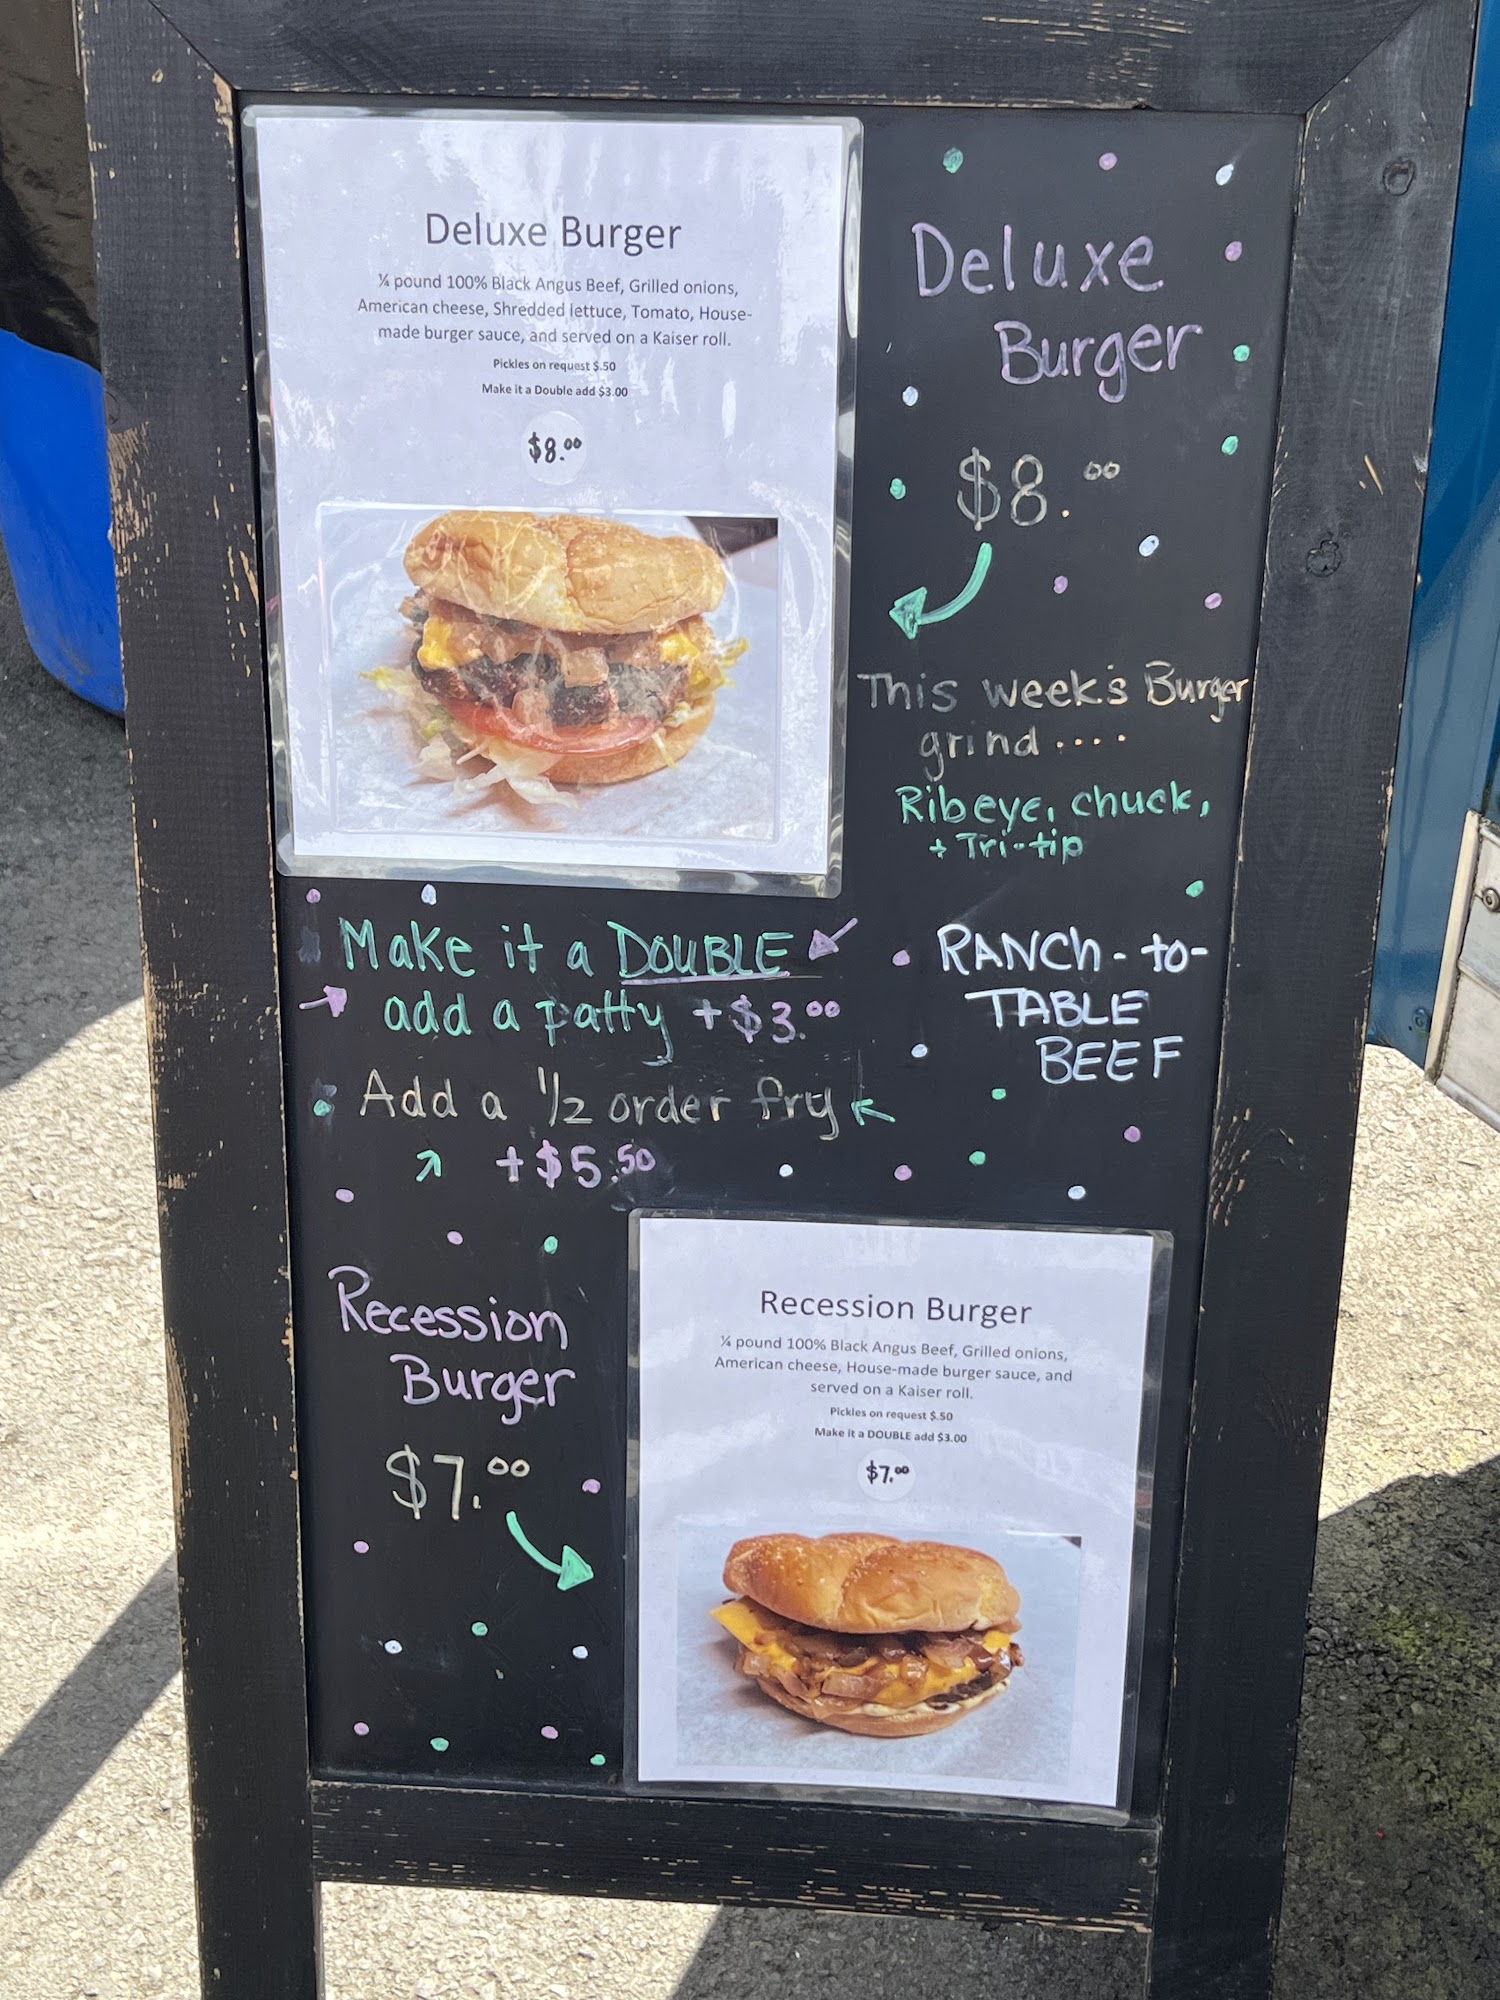 Deluxe Burger
¼ pound 100% Black Angus Beef, Grilled onions,
American cheese, Shredded lettuce, Tomato, House-
made burger sauce, and served on a Kaiser roll.
Pickles on request $.50
Make it a Double add $3.00
$8.00
Deluxe
Burger
$8.00
This week's Burger
grind....
Ribeye, chuck,
+ Tri-tip
RANCh-to-
TABLE
BEEF
Make it a DOUBLE
add a patty +$3.00
Add a 1/2 order fry
+$5.50
Recession
Burger
$7.00
Recession Burger
¼ pound 100% Black Angus Beef, Grilled onions,
American cheese, House-made burger sauce, and
served on a Kaiser roll.
Pickles on request $.50
Make it a DOUBLE add $3.00
$7.00